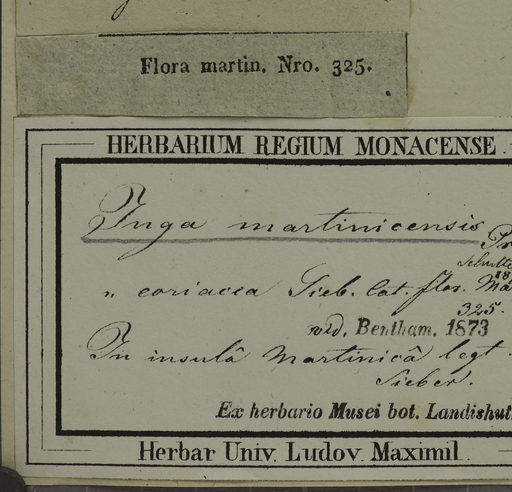 Flora martin. Nro. 325.
HERBARIUM REGIUM MONACENSE.
Inga martinicensis Pr
" coriacea Sieb. Cat. flor. Ma
325.
vid. Bentham. 1873
In insulâ Martinicâ legt.
Sieber.
Ex herbario Musei bot. Landishut
Herbar Univ. Ludov. Maximil.